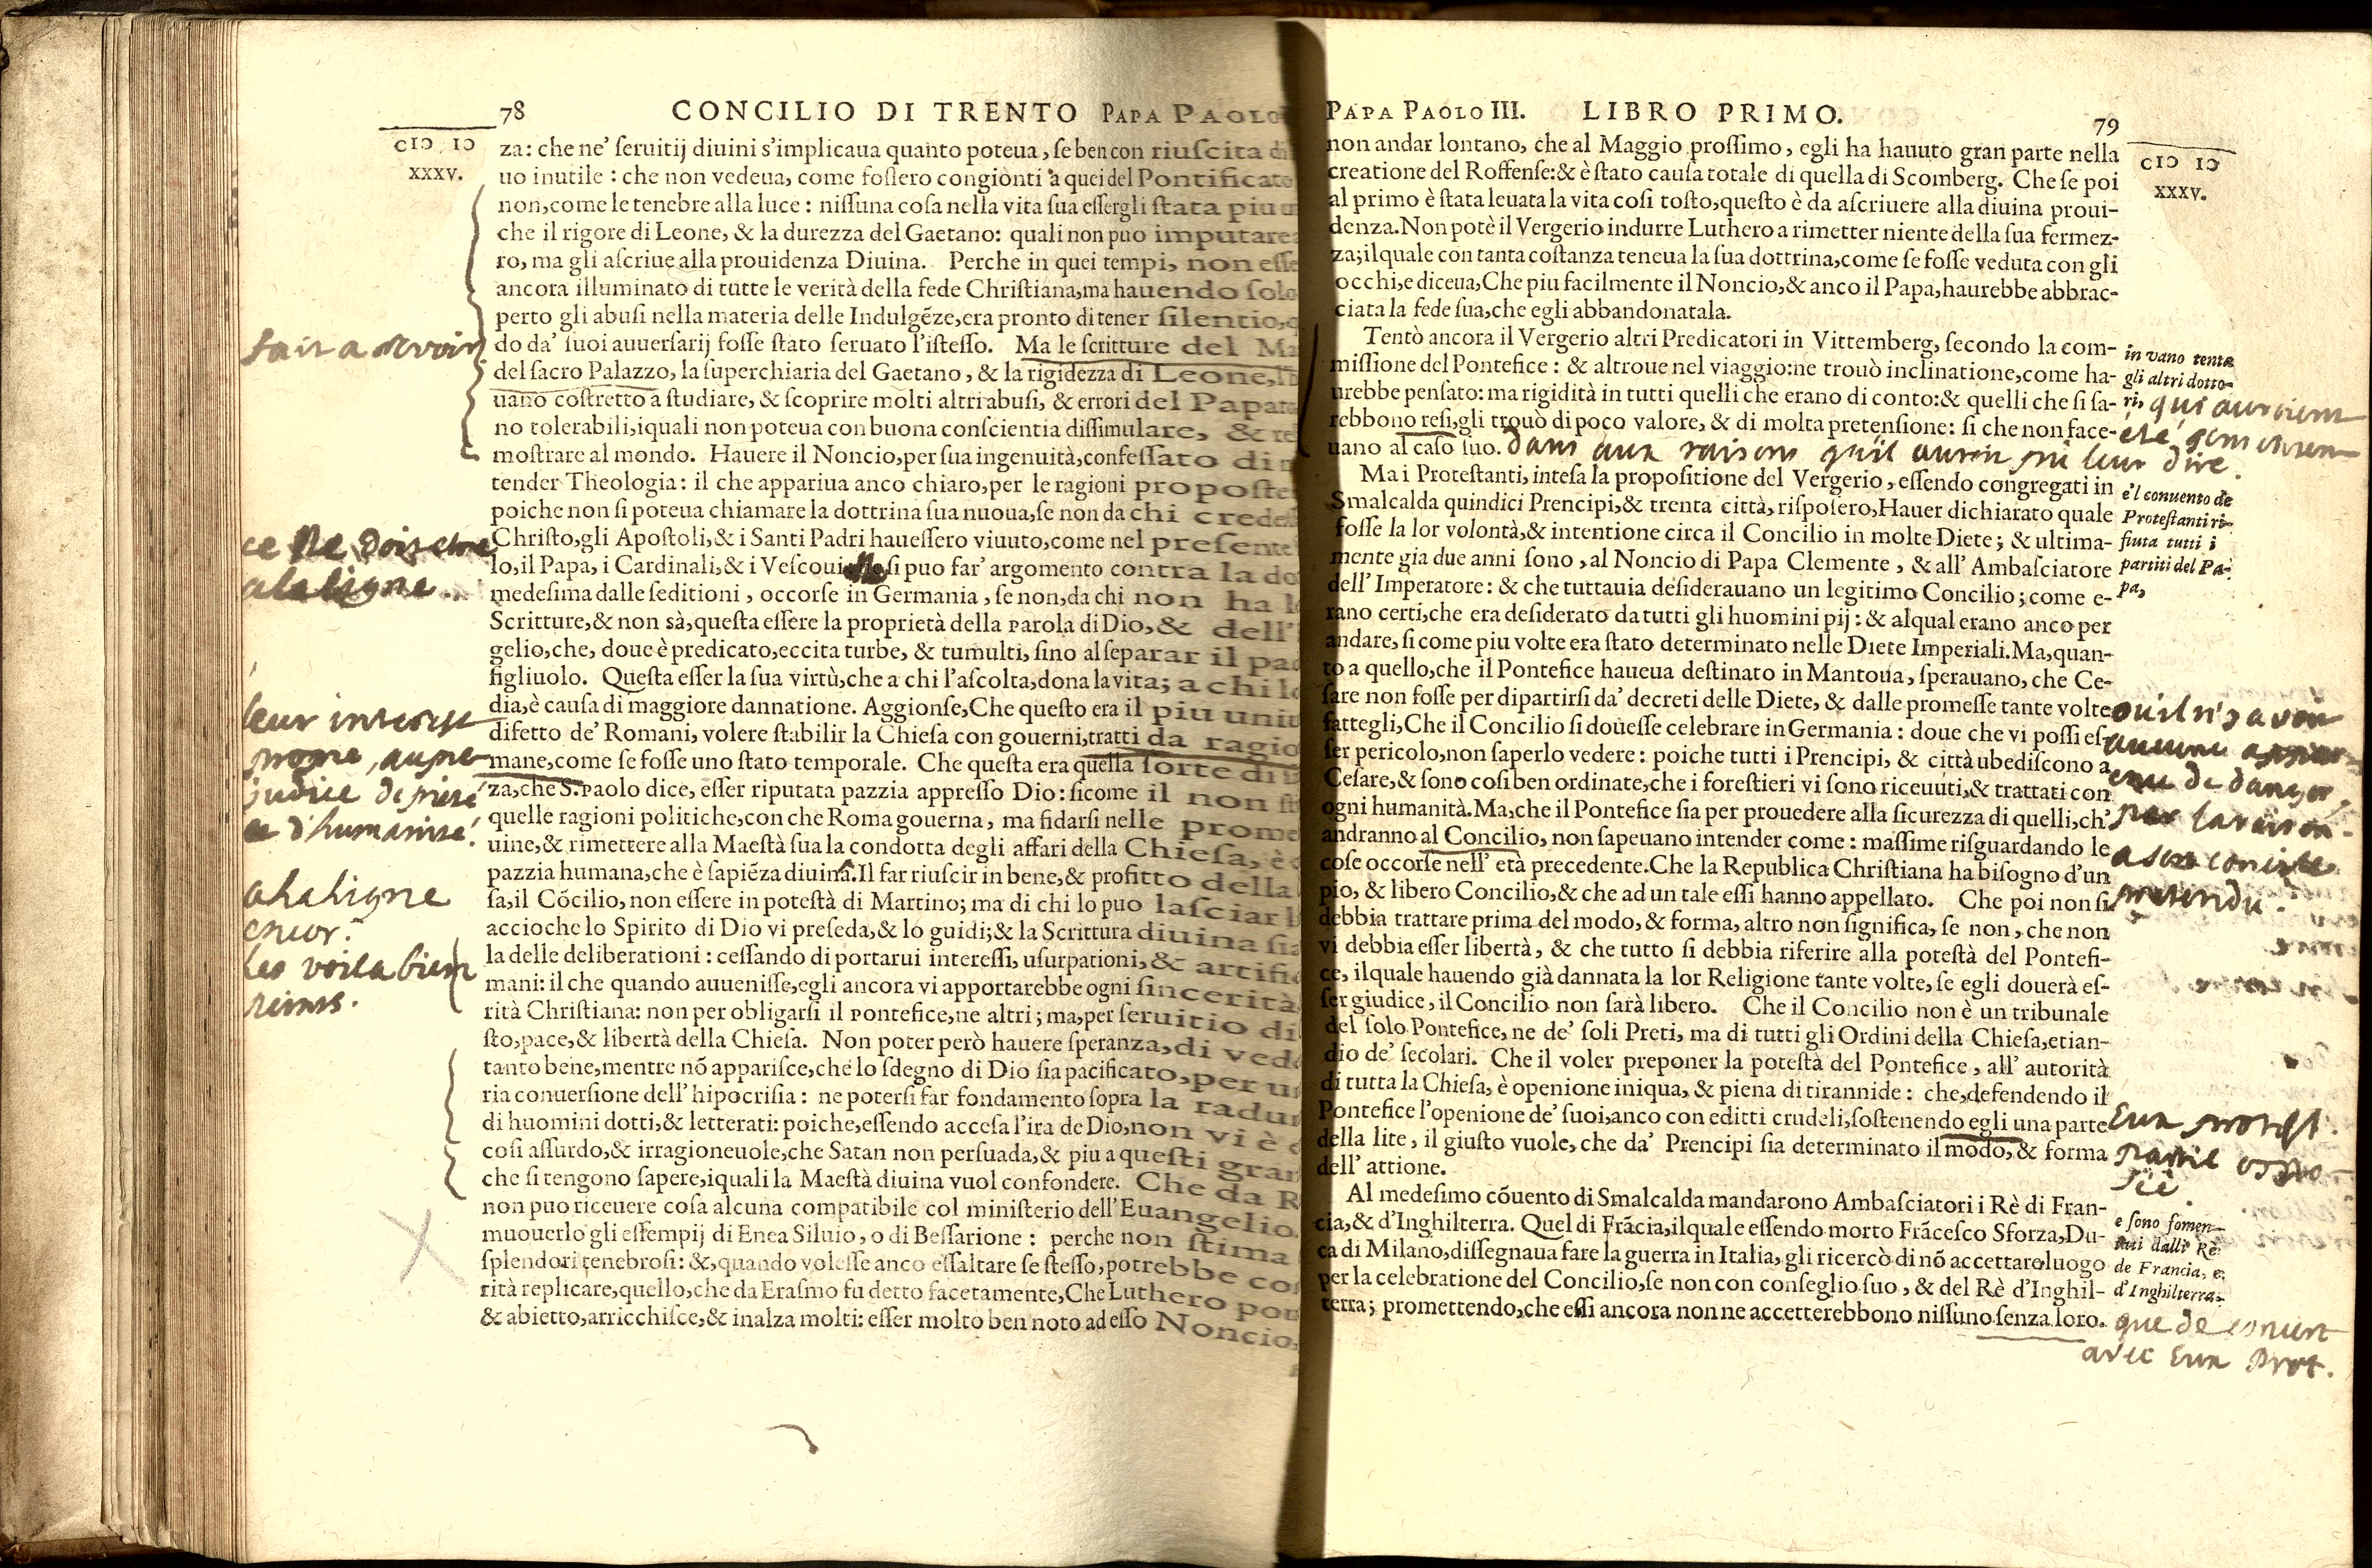 78 CONCILIO DI TRENTO PAPA PAOLO
CIƆ IƆ
XXXV.
za: che ne' ſeruitij diuini s'implicaua quanto poteua, ſe ben con riuſcita di
uo inutile : che non vedeua, come foſſero congionti a quei del Pontificato
non, come le tenebre alla luce : niſſuna coſa nella vita ſua eſſergli ſtata piu
che il rigore di Leone, & la durezza del Gaetano: quali non puo imputare
ro, ma gli aſcriue alla prouidenza Diuina. Perche in quei tempi, non eſſe
ancora illuminato di tutte le verità della fede Chriſtiana, ma hauendo ſolo
perto gli abuſi nella materia delle Indulgẽze, era pronto di tener ſilentio,
do da' ſuoi auuerſarij foſſe ſtato ſeruato l'iſteſſo. Ma le ſcritture del Ma
del ſacro Palazzo, la ſuperchiaria del Gaetano, & la rigidezza di Leone,
uano coſtretto a ſtudiare, & ſcoprire molti altri abuſi, & errori del Papato
no tolerabili, iquali non poteua con buona conſcientia diſſimulare, &
moſtrare al mondo. Hauere il Noncio, per ſua ingenuità, confeſſato di
tender Theologia: il che appariua anco chiaro, per le ragioni propoſte
poiche non ſi poteua chiamare la dottrina ſua nuoua, ſe non da chi crede
ce ne doit etre
Chriſto, gli Apoſtoli, & i Santi Padri haueſſero viuuto, come nel preſente
lo, il Papa, i Cardinali, & i Veſcoui. ſi puo far' argomento contra la do
a la ligne.
medeſima dalle ſeditioni, occorſe in Germania, ſe non, da chi non ha
Scritture, & non sà, queſta eſſere la proprietà della parola di Dio, & dell'
gelio, che, doue è predicato, eccita turbe, & tumulti, ſino al ſeparar il pa
figliuolo. Queſta eſſer la ſua virtù, che a chi l'aſcolta, dona la vita; a chi
dia, è cauſa di maggiore dannatione. Aggionſe, Che queſto era il piu uni
leur interest
difetto de' Romani, volere ſtabilir la Chieſa con gouerni, tratti da ragio
propre, au pre-
mane, come ſe foſſe uno ſtato temporale. Che queſta era quella ſorte di
judice de pieté
za, che S. Paolo dice, eſſer riputata pazzia appreſſo Dio: ſicome il non
quelle ragioni politiche, con che Roma gouerna, ma fidarſi nelle prome
et d'humanité.
uine, & rimettere alla Maeſtà ſua la condotta degli affari della Chieſa, è
pazzia humana, che è ſapiẽza diuina. Il far riuſcir in bene, & profitto della
a la ligne
ſa, il Cõcilio, non eſſere in poteſtà di Martino; ma di chi lo puo laſciar
accioche lo Spirito di Dio vi preſeda, & lo guidi; & la Scrittura diuina ſia
la delle deliberationi : ceſſando di portarui intereſſi, uſurpationi, & artifi
les voila bien
mani: il che quando auueniſſe, egli ancora vi apportarebbe ogni ſincerità
rità Chriſtiana: non per obligarſi il Pontefice, ne altri; ma, per ſeruitio di
ſto, pace, & libertà della Chieſa. Non poter però hauere ſperanza, di ved
tanto bene, mentre nõ appariſce, che lo ſdegno di Dio ſia pacificato, per
ria conuerſione dell' hipocriſia : ne poterſi far fondamento ſopra la radu
di huomini dotti, & letterati: poiche, eſſendo acceſa l'ira de Dio, non vi è
coſi aſſurdo, & irragioneuole, che Satan non perſuada, & piu a queſti gran
che ſi tengono ſapere, iquali la Maeſtà diuina vuol confondere. Che da R
non puo riceuere coſa alcuna compatibile col miniſterio dell' Euangelio.
muouerlo gli eſſempij di Enea Siluio, o di Beſſarione : perche non ſtima
ſplendori tenebroſi: &, quando voleſſe anco eſſaltare ſe ſteſſo, potrebbe co
rità replicare, quello, che da Eraſmo fu detto facetamente, Che Luthero po
& abietto, arricchiſce, & inalza molti: eſſer molto ben noto ad eſſo Noncio,
PAPA PAOLO III. LIBRO PRIMO. 79
CIƆ IƆ
XXXV.
non andar lontano, che al Maggio proſſimo, egli ha hauuto gran parte nella
creatione del Roffenſe: & è ſtato cauſa totale di quella di Scomberg. Che ſe poi
al primo è ſtata leuata la vita coſi toſto, queſto è da aſcriuere alla diuina proui-
denza. Non potè il Vergerio indurre Luthero a rimetter niente della ſua fermez-
za; ilquale con tanta coſtanza teneua la ſua dottrina, come ſe foſſe veduta con gli
occhi, e diceua, Che piu facilmente il Noncio, & anco il Papa, haurebbe abbrac-
ciata la fede ſua, che egli abbandonatala.
Tentò ancora il Vergerio altri Predicatori in Vittemberg, ſecondo la com-
miſſione del Pontefice : & altroue nel viaggio: ne trouò inclinatione, come ha-
urebbe penſato: ma rigidità in tutti quelli che erano di conto: & quelli che ſi ſa-
rebbono reſi, gli trouò di poco valore, & di molta pretenſione: ſi che non face-
uano al caſo ſuo.
in vano tenta
gli altri dotto-
ri,
Ma i Proteſtanti, inteſa la propoſitione del Vergerio, eſſendo congregati in
Smalcalda quindici Prencipi, & trenta città, riſpoſero, Hauer dichiarato quale
foſſe la lor volontà, & intentione circa il Concilio in molte Diete; & ultima-
mente gia due anni ſono, al Noncio di Papa Clemente, & all' Ambaſciatore
dell' Imperatore: & che tuttauia deſiderauano un legitimo Concilio; come e-
rano certi, che era deſiderato da tutti gli huomini pij: & alqual erano anco per
andare, ſi come piu volte era ſtato determinato nelle Diete Imperiali. Ma, quan-
to a quello, che il Pontefice haueua deſtinato in Mantoua, ſperauano, che Ce-
ſare non foſſe per dipartirſi da' decreti delle Diete, & dalle promeſſe tante volte
fattegli, Che il Concilio ſi doueſſe celebrare in Germania : doue che vi poſſi eſ-
ſer pericolo, non ſaperlo vedere: poiche tutti i Prencipi, & città ubediſcono a
Ceſare, & ſono coſi ben ordinate, che i foreſtieri vi ſono riceuuti, & trattati con
ogni humanità. Ma, che il Pontefice ſia per prouedere alla ſicurezza di quelli, ch'
andranno al Concilio, non ſapeuano intender come : maſſime riſguardando le
coſe occorſe nell' età precedente. Che la Republica Chriſtiana ha biſogno d'un
pio, & libero Concilio, & che ad un tale eſſi hanno appellato. Che poi non ſi
debbia trattare prima del modo, & forma, altro non ſignifica, ſe non, che non
vi debbia eſſer libertà, & che tutto ſi debbia riferire alla poteſtà del Pontefi-
ce, ilquale hauendo già dannata la lor Religione tante volte, ſe egli douerà eſ-
ſer giudice, il Concilio non ſarà libero. Che il Concilio non è un tribunale
del ſolo Pontefice, ne de' ſoli Preti, ma di tutti gli Ordini della Chieſa, etian-
dio de' ſecolari. Che il voler preponer la poteſtà del Pontefice, all' autorità
di tutta la Chieſa, è openione iniqua, & piena di tirannide : che, defendendo il
Pontefice l'openione de' ſuoi, anco con editti crudeli, ſoſtenendo egli una parte
della lite, il giuſto vuole, che da' Prencipi ſia determinato il modo, & forma
dell' attione.
e'l conuento de
Proteſtanti ri-
fiuta tutti i
partiti del Pa-
pa,
Al medeſimo cõuento di Smalcalda mandarono Ambaſciatori i Rè di Fran-
cia, & d'Inghilterra. Quel di Frãcia, ilquale eſſendo morto Frãceſco Sforza, Du-
ca di Milano, diſſegnaua fare la guerra in Italia, gli ricercò di nõ accettare luogo
per la celebratione del Concilio, ſe non con conſeglio ſuo, & del Rè d'Inghil-
terra; promettendo, che eſſi ancora non ne accetterebbono niſſuno ſenza loro.
e ſono fomen-
tati dalli Rè
de Francia, e
d'Inghilterra.
que de concert
avec eux Prot.